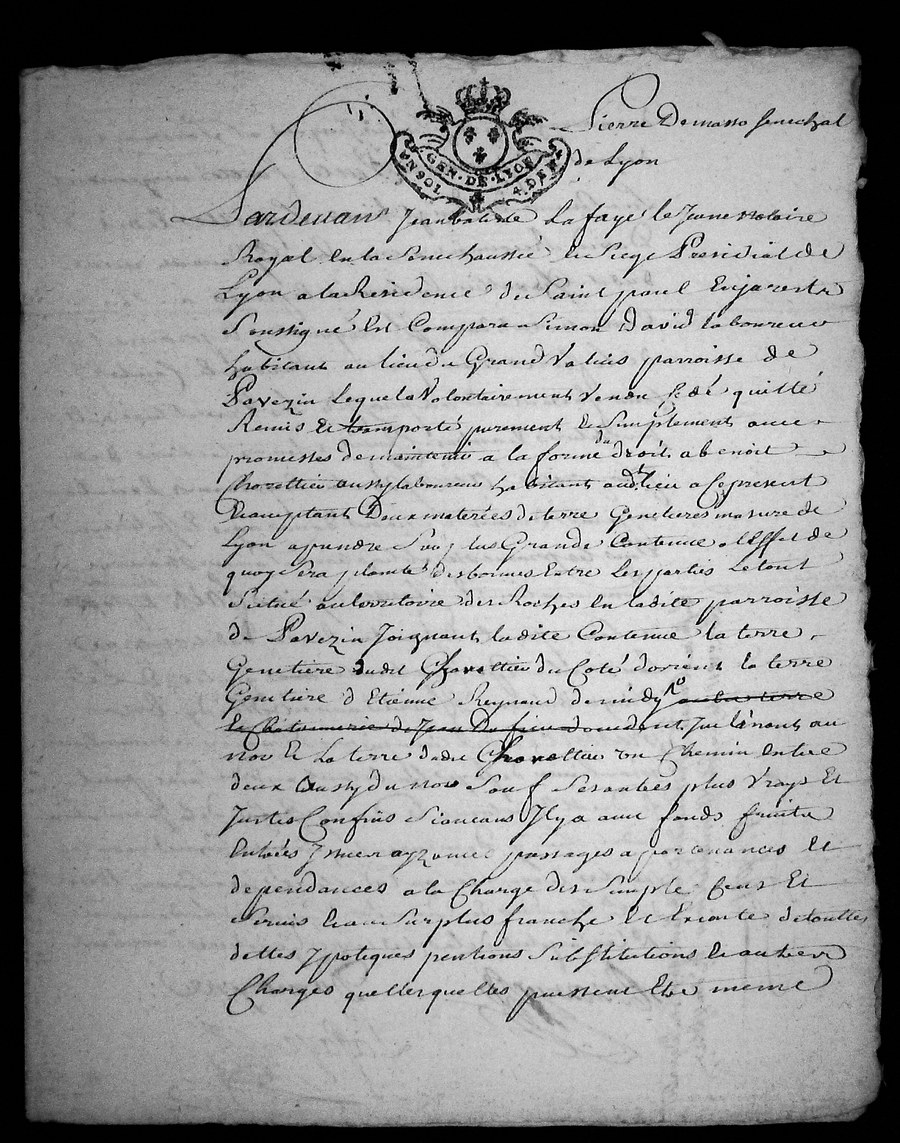 Pierre Demasso senechal
de Lyon
GEN. DE. LYON
UN SOL 4. DEN
Pardevant Jean batiste La faye le Jeune notaire
Royal en la Senechaussée et Siege Presidial de
Lyon a la Residence de Saint paul Enjarest
Soussigné Est Comparu Simon David laboureur
habitant au lieu du Grand Valuis parroisse de
Pavezin Lequel a Volontairement Vendu Cedé quitté
Remis et transporté purement et Simplement avec
promesses de maintenir a la forme du droit a benoit
Chorettier aussy laboureur habitant audt lieu a Ce present
Et acceptant Deux materées de terre Genetieres mesure de
Lyon a prendre Sur plus Grande Contenue a l'Effet de
quoy Sera planté des bornes Entre Les parties Le tout
Situé au territoire des Roches En ladite parroisse
de Pavezin Joignant ladite Contenue la terre
Genetiere dudit Chorettier du Coté d'orient la terre
Genetiere d'Etienne Reynaud de midy
la de Jean occident tirant au
nord Et La terre dudt Chorettier un Chemin Entre
deux aussy du nord Sauf Ses autres plus Vrays Et
Justes Confins Sioucuns Il y a avec fonds fruits
Entrées Issues passages apartenances Et
dependances a la Charge des Simple Cens Et
Servis Et au Surplus franche Et Exente de touttes
dettes Ypoteques pentions Substitutions Et autres
Charges quelles quelles puissent Etre meme